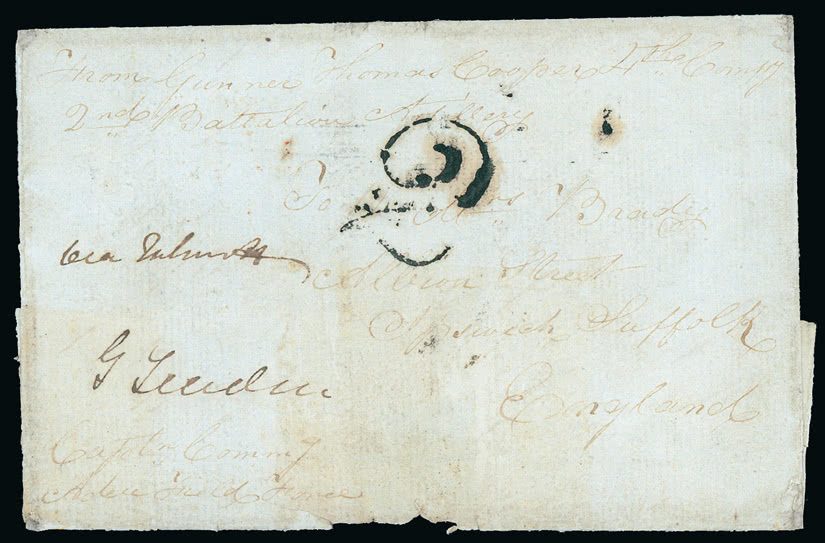 From Gunner Thomas Cooper 4th Comy
2nd Battalion Artillery
2
To Mrs Brady
via Falmouth
Albion Street
Ipswich Suffolk
England
G
Captn Commg
Field Force